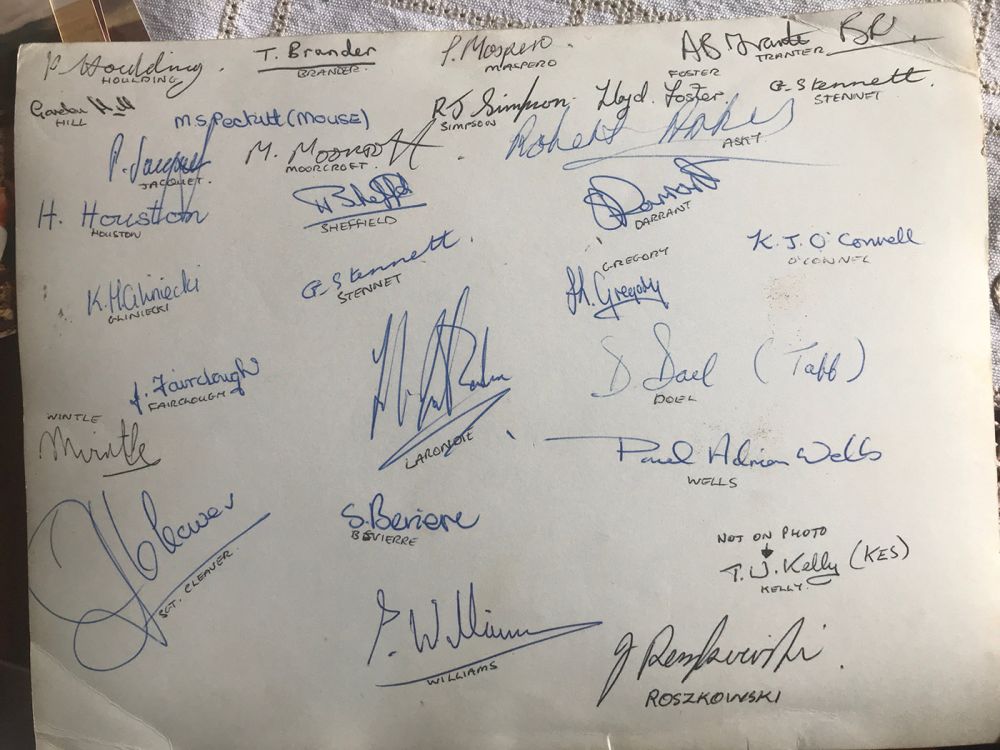 P. Houlding. T. Brander P. Maspero. AB Trante
HOULDING BRANDER MASPERO FOSTER TRANTER
Gordon Hill M.S Peckett (MOUSE) RJ Simpson. Lloyd. Foster. G. Stennett.
HILL SIMPSON STENNET
P. Jacquet M. Moorcroft Robert
JACQUET. MOORCROFT. ASKY
H. Houston Sheffield Darrant
HOUSTON SHEFFIELD DARRANT
K. J. O'Connell
O'CONNEL
K. H Gliniecki G. Stennett. GREGORY
GLINIECKI STENNET Gregory
J. Fairclough D. Doel (Taff)
FAIRCLOUGH DOEL
WINTLE
Wintle LARONDIE Paul Adrian Wells
WELLS
Cleaver S. Beviere
SGT. CLEAVER BEVIERRE
NOT ON PHOTO
T. J. Kelly (KES)
KELLY.
Williams J Roszkowski.
WILLIAMS ROSZKOWSKI